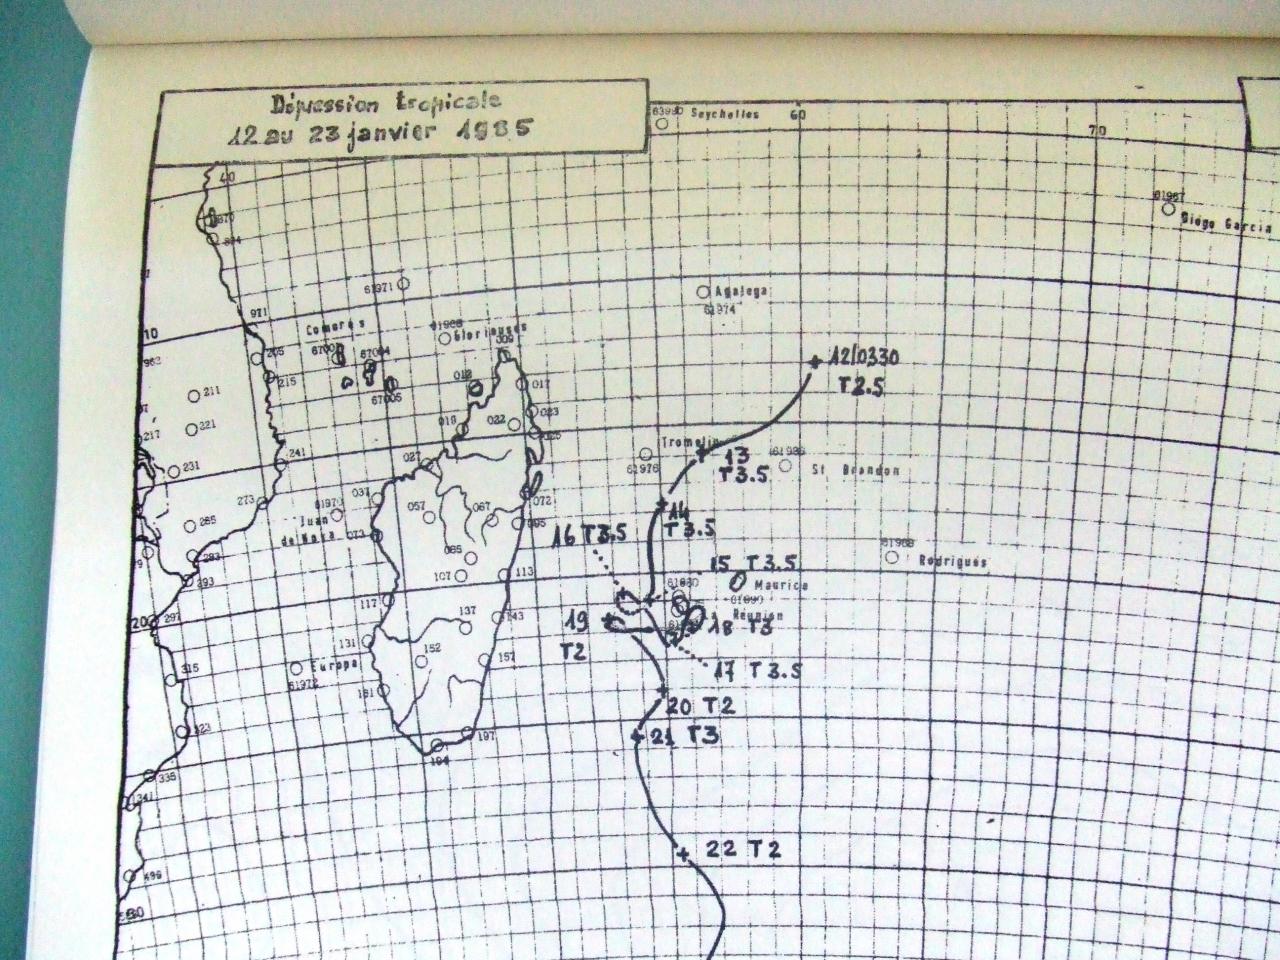 Dépression tropicale
12 au 23 janvier 1985
63980 Seychelles
60
70
40
870
894
61967
Diégo Garcia
61971
971
10
Agalega
61974
Comores
67002
67004
67005
61968
Glorieuses
009
205
215
211
221
217
231
241
273
285
283
293
297
20
012
017
019
022
023
025
027
12/0330
T2.5
Tromelin
61976
13
T3.5
61986
St Brandon
61970
Juan
de Nova
037
057
067
072
073
085
095
107
113
117
14
T3.5
16 T3.5
15 T3.5
61988
Rodrigues
Maurice
61990
61980
Réunion
18 T3
19
T2
17 T3.5
131
137
143
152
157
161
Europa
61972
197
194
315
323
335
341
20 T2
21 T3
22 T2
30